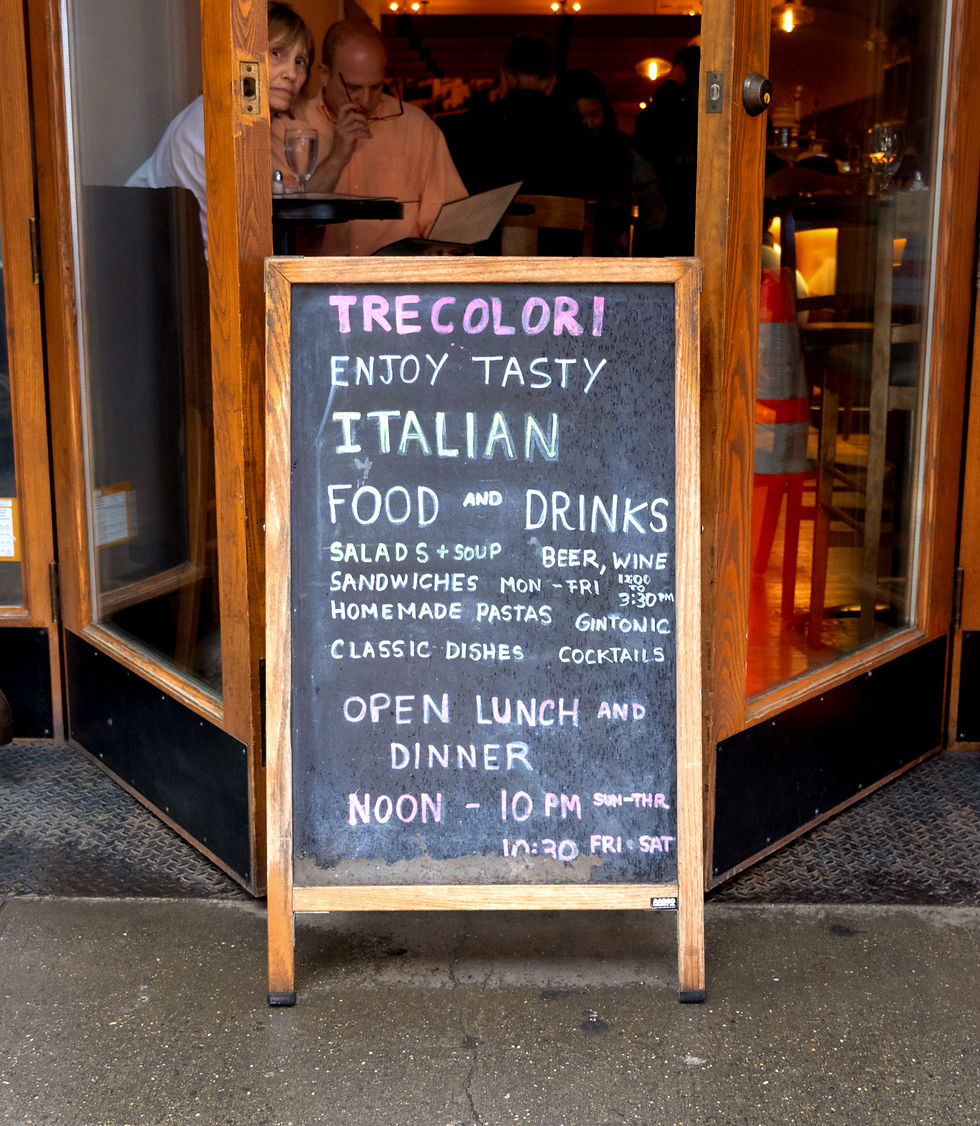 TRECOLORI
ENJOY TASTY
ITALIAN
FOOD AND DRINKS
SALADS + SOUP BEER, WINE
SANDWICHES MON - FRI 12:00 TO 3:30 PM
HOMEMADE PASTAS GINTONIC
CLASSIC DISHES COCKTAILS
OPEN LUNCH AND
DINNER
NOON - 10 PM SUN-THR
10:30 FRI • SAT